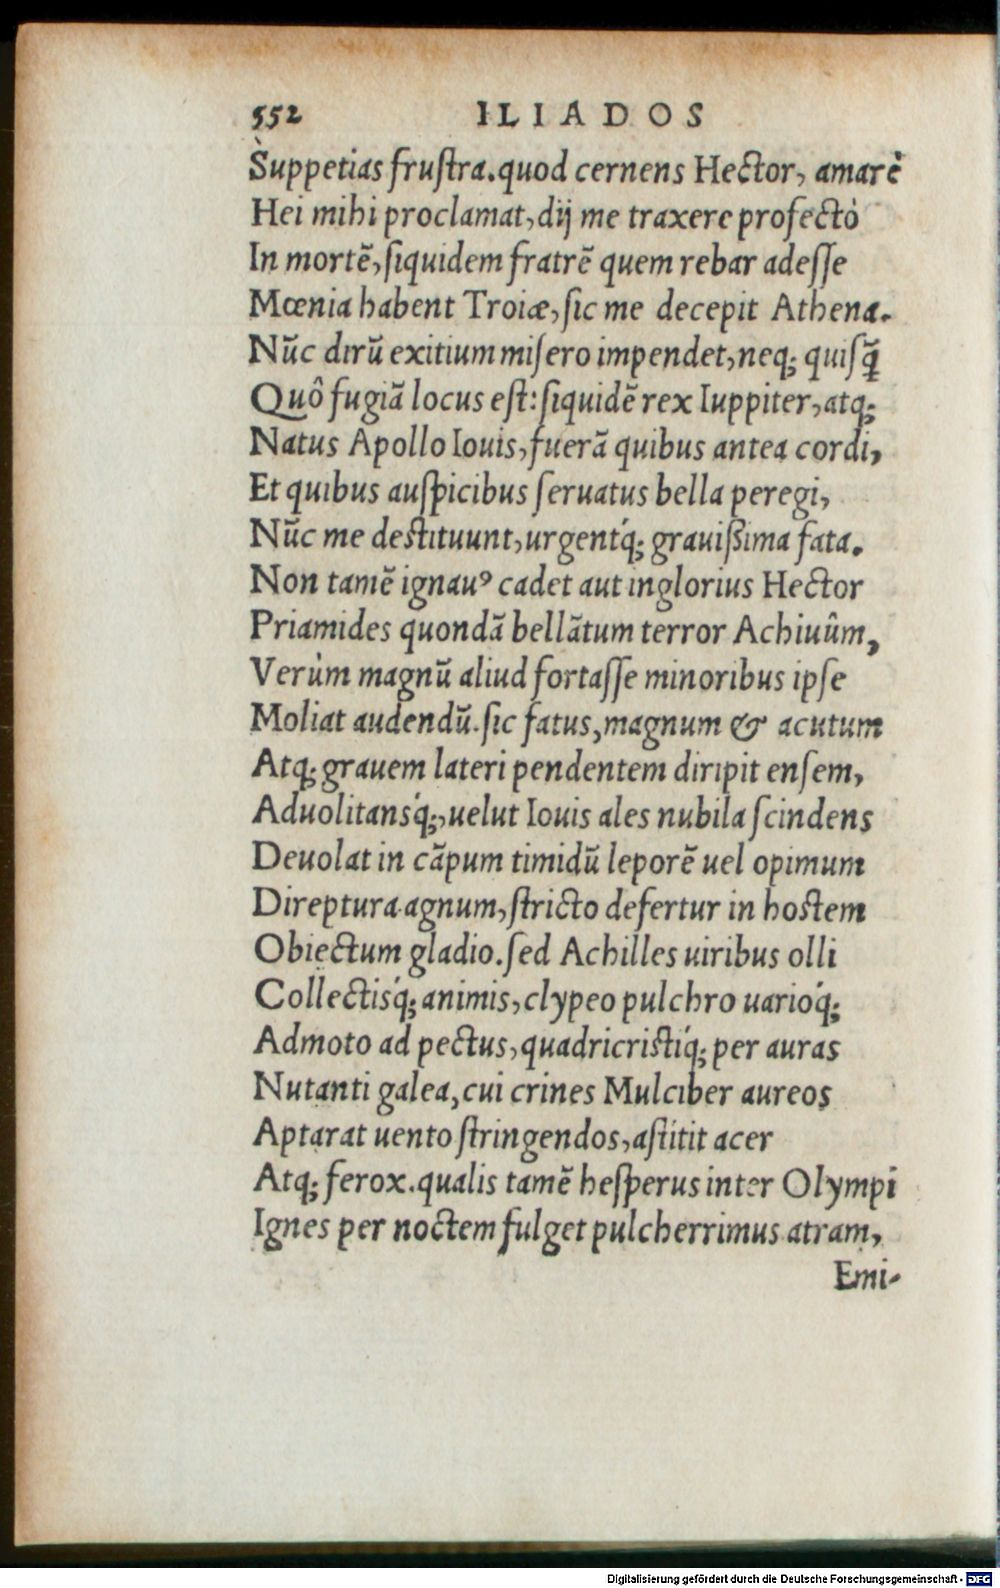 552 ILIADOS
Suppetias frustra. quod cernens Hector, amarè
Hei mihi proclamat, dij me traxere profectò
In mortē, siquidem fratrē quem rebar adesse
Mœnia habent Troiæ, sic me decepit Athena.
Nūc dirū exitium misero impendet, neq; quisq̄
Quô fugiā locus est: siquidē rex Iuppiter, atq;
Natus Apollo Iouis, fuerā quibus antea cordi,
Et quibus auspicibus seruatus bella peregi,
Nūc me destituunt, urgentq́; grauißima fata.
Non tamē ignauꝰ cadet aut inglorius Hector
Priamides quondā bellātum terror Achiuûm,
Verùm magnū aliud fortasse minoribus ipse
Moliat audendū. sic fatus, magnum & acutum
Atq; grauem lateri pendentem diripit ensem,
Aduolitansq́;, uelut Iouis ales nubila scindens
Deuolat in cāpum timidū leporē uel opimum
Direptura agnum, stricto defertur in hostem
Obiectum gladio. sed Achilles uiribus olli
Collectisq́; animis, clypeo pulchro uarioq́;
Admoto ad pectus, quadricristiq́; per auras
Nutanti galea, cui crines Mulciber aureos
Aptarat uento stringendos, astitit acer
Atq; ferox. qualis tamē hesperus inter Olympi
Ignes per noctem fulget pulcherrimus atram,
Emi-
Digitalisierung gefördert durch die Deutsche Forschungsgemeinschaft - DFG